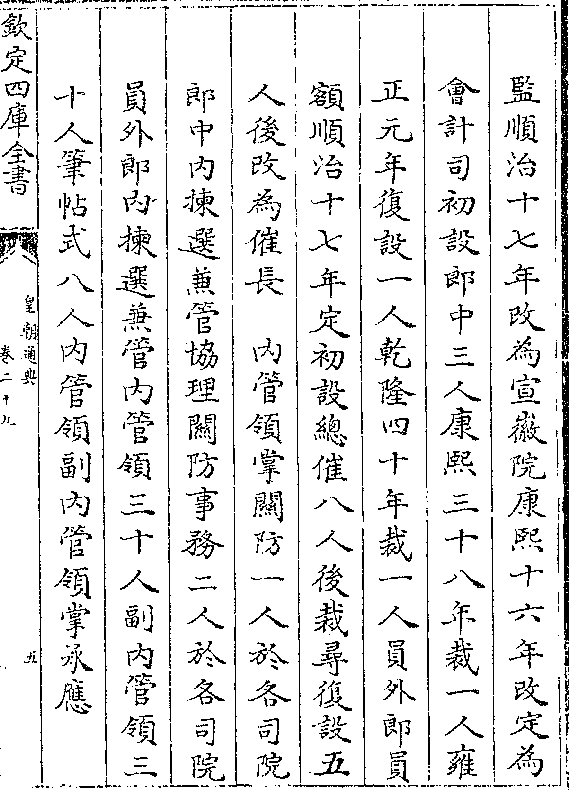 監順治十七年改為宣徽院康熙十六年改定為
會計司初設郎中三人康熙三十八年裁一人雍
正元年復設一人乾隆四十年裁一人員外郎員
額順治十七年定初設總催八人後裁尋復設五
人後改為催長　內管領掌關防一人於各司院
郎中內揀選兼管協理關防事務二人於各司院
員外郎內揀選兼管內管領三十人副內管領三
十人筆帖式八人內管領副內管領掌承應
欽定四庫全書
皇朝通典
卷二十九
五